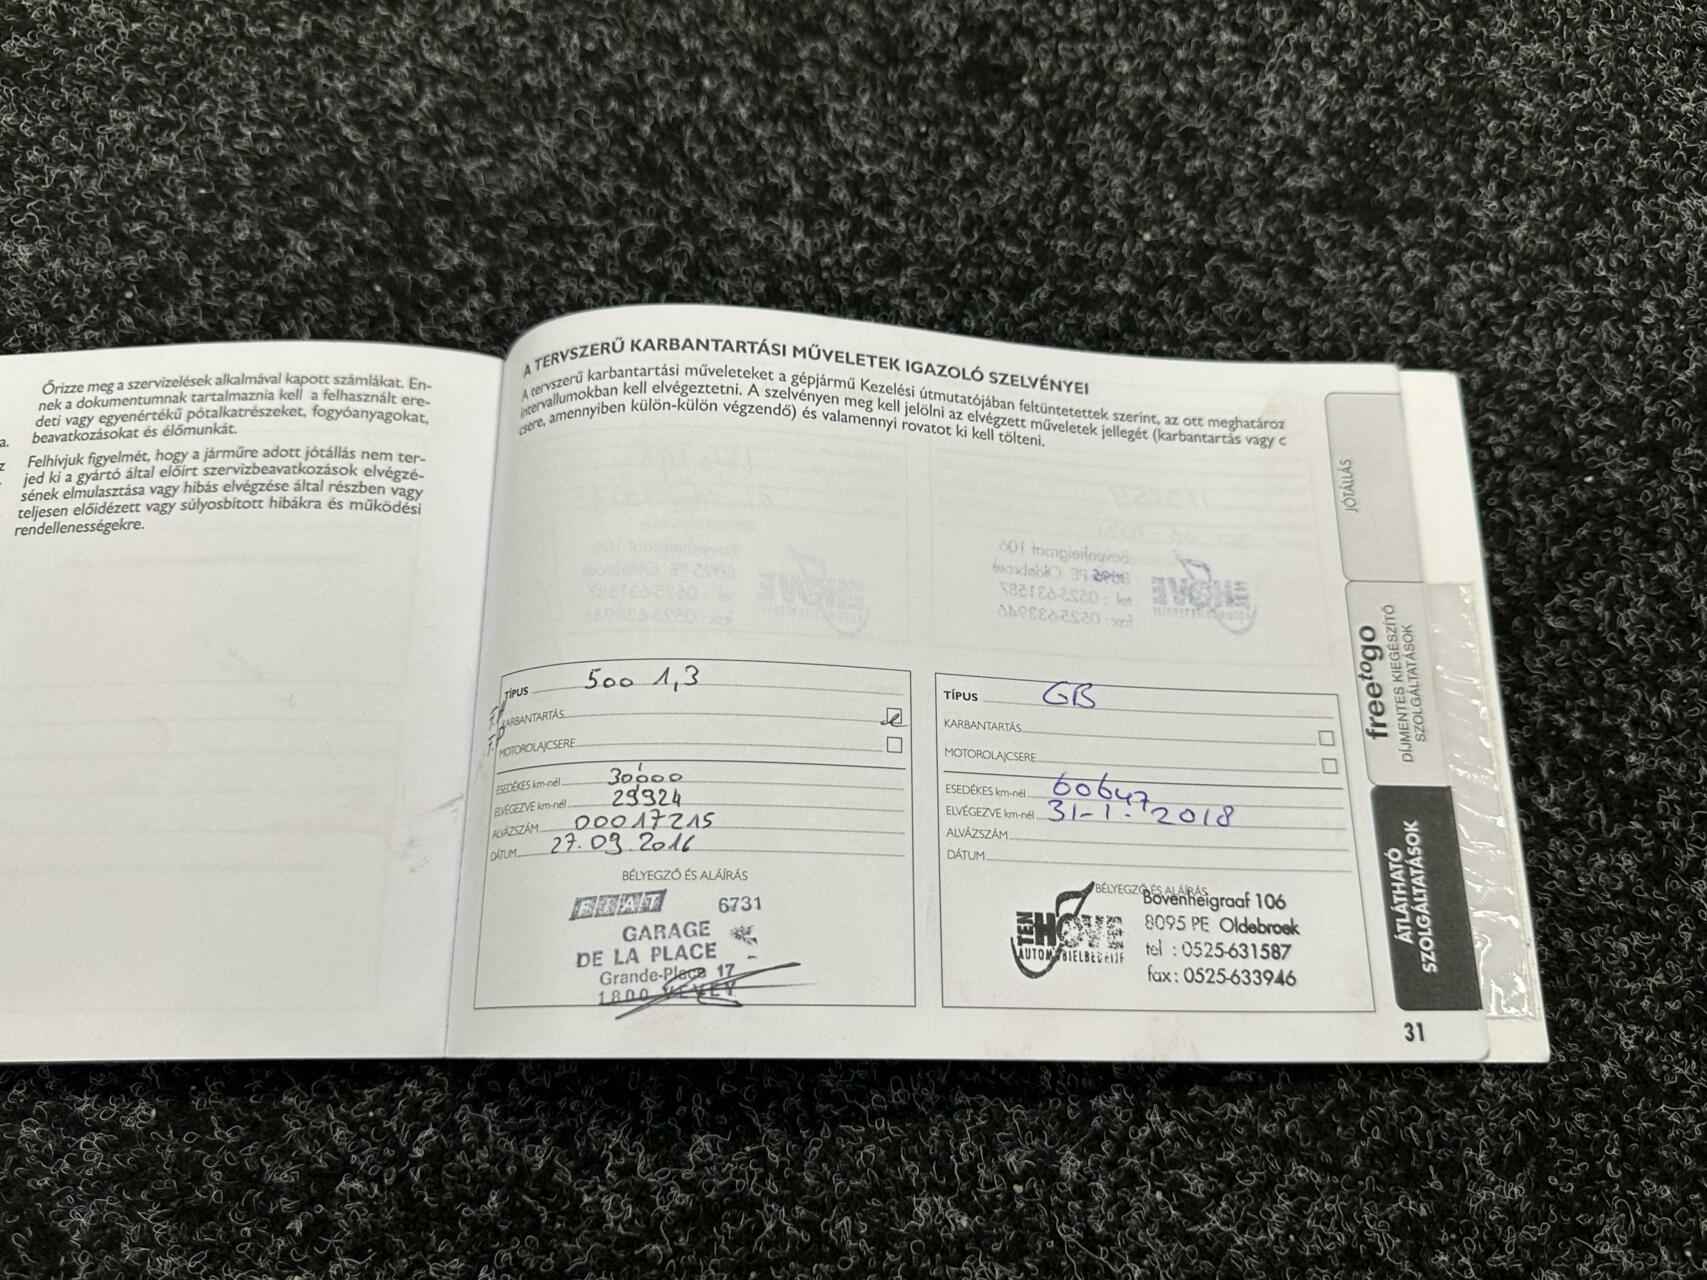 Őrizze meg a szervizelések alkalmával kapott számlákat. En-
nek a dokumentumnak tartalmaznia kell a felhasznált ere-
deti vagy egyenértékű pótalkatrészeket, fogyóanyagokat,
beavatkozásokat és élőmunkát.
Felhívjuk figyelmét, hogy a járműre adott jótállás nem ter-
jed ki a gyártó által előírt szervizbeavatkozások elvégzé-
sének elmulasztása vagy hibás elvégzése által részben vagy
teljesen előidézett vagy súlyosbított hibákra és működési
rendellenességekre.
a.
z
A TERVSZERŰ KARBANTARTÁSI MŰVELETEK IGAZOLÓ SZELVÉNYEI
A tervszerű karbantartási műveleteket a gépjármű Kezelési útmutatójában feltüntetettek szerint, az ott meghatároz
intervallumokban kell elvégeztetni. A szelvényen meg kell jelölni az elvégzett műveletek jellegét (karbantartás vagy c
csere, amennyiben külön-külön végzendő) és valamennyi rovatot ki kell tölteni.
TÍPUS 500 1,3
KARBANTARTÁS
MOTOROLAJCSERE
ESEDÉKES km-nél 30'000
ELVÉGEZVE km-nél 29924
ALVÁZSZÁM 00017215
DÁTUM 27.09.2016
BÉLYEGZŐ ÉS ALÁÍRÁS
FIAT 6731
GARAGE
DE LA PLACE
Grande-Place 17
1800 VEVEY
TÍPUS GB
KARBANTARTÁS
MOTOROLAJCSERE
ESEDÉKES km-nél 60647
ELVÉGEZVE km-nél 31-1-2018
ALVÁZSZÁM
DÁTUM
BÉLYEGZŐ ÉS ALÁÍRÁS
TEN HOVE
AUTOMOBIELBEDRIJF
Bovenheigraaf 106
8095 PE Oldebroek
tel : 0525-631587
fax : 0525-633946
JÓTÁLLÁS
freetogo
DÍJMENTES KIEGÉSZÍTŐ
SZOLGÁLTATÁSOK
ÁTLÁTHATÓ
SZOLGÁLTATÁSOK
31